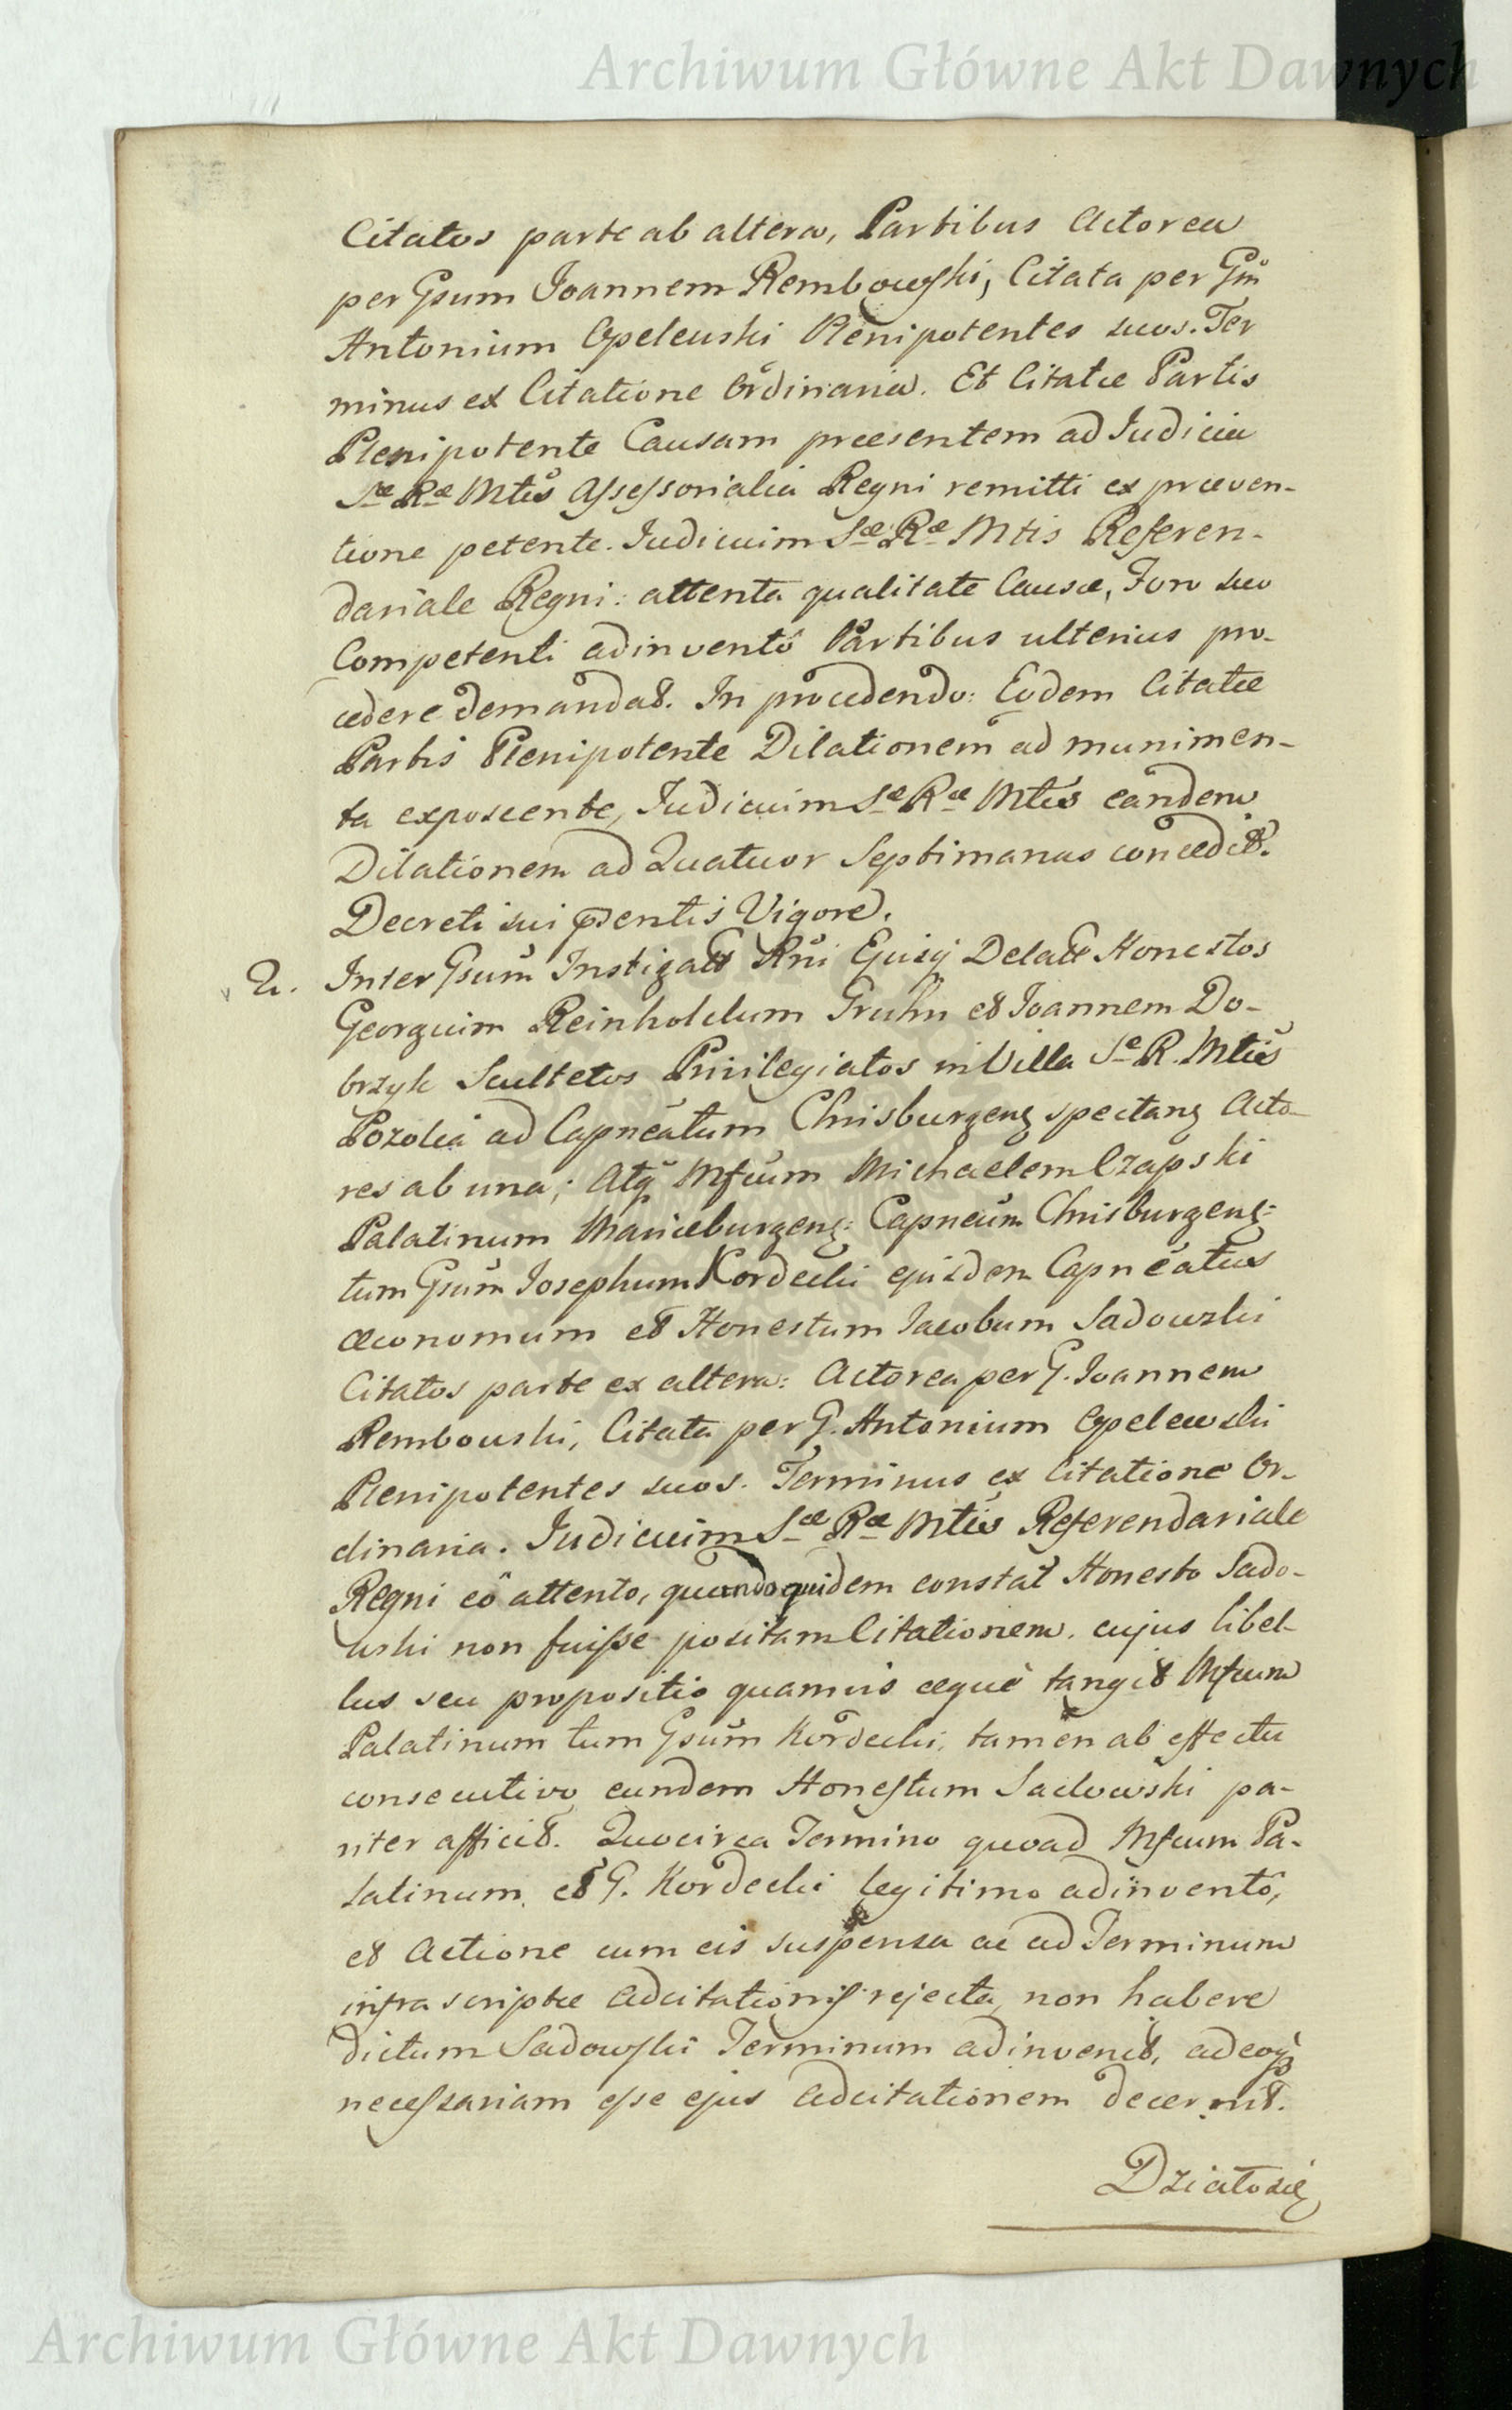 Archiwum Główne Akt Dawnych
Citatos parte ab altera, Partibus Actorea
per Gsum Joannem Rembowski, Citata per Gm̃
Antonium Opelewski Plenipotentes suos. Ter
minus ex Citatione Ordinaria. Et Citatæ Partis
Plenipotente Causam præsentem ad Judicia
Sæ Ræ Mtis Assessorialia Regni remitti ex præven-
tione petente. Judicium Sæ Ræ Mtis Referen-
dariale Regni: attenta qualitate Causæ, Foro suo
Competenti adinvento Partibus ulterius pro-
cedere demandat. In procedendo: Eodem Citatæ
Partis Plenipotente Dilationem ad munimen-
ta exposcente, Judicium Sæ Ræ Mtis eandem
Dilationem ad Quatuor Septimanas concedit.
Decreti sui pñsentis Vigore.
2. Inter Gsum Instigatt Rni Ejusq Delatt Honestos
Georgium Reinholdum Gruhn et Joannem Do-
brzyk Scultetos Privilegiatos in Villa Sæ R. Mtis
Pozolia ad Capneatum Chrisburgens spectans Acto-
res ab una; Atq Mfcum Michaelem Czapski
Palatinum Marieburgens: Capneum Chrisburgens:
tum Gsum Josephum Kordecki ejusdem Capneatus
Œconomum et Honestum Jacobum Sadowski
Citatos parte ex altera: Actorea per G. Joannem
Rembowski, Citata per G. Antonium Opelewski
Plenipotentes suos. Terminus ex Citatione Or-
dinaria. Judicium Sæ Ræ Mtis Referendariale
Regni eô attento, quandoquidem constat Honesto Sado-
wski non fuisse positam Citationem. cujus libel-
lus seu propositio quamvis æquè tangit Mfcum
Palatinum tum Gsum Kordecki, tamen ab effectu
consecutivo eundem Honestum Sadowski pa-
riter afficit. Quocirca Termino quoad Mfcum Pa-
latinum, et G. Kordecki legitimo adinvento,
et Actione cum eis suspensa ac ad Terminum
infrascriptæ Adcitationis rejecta, non habere
dictum Sadowski Terminum adinvenit, adeoq
necessariam esse ejus Adcitationem decernit.
Działosię
Archiwum Główne Akt Dawnych